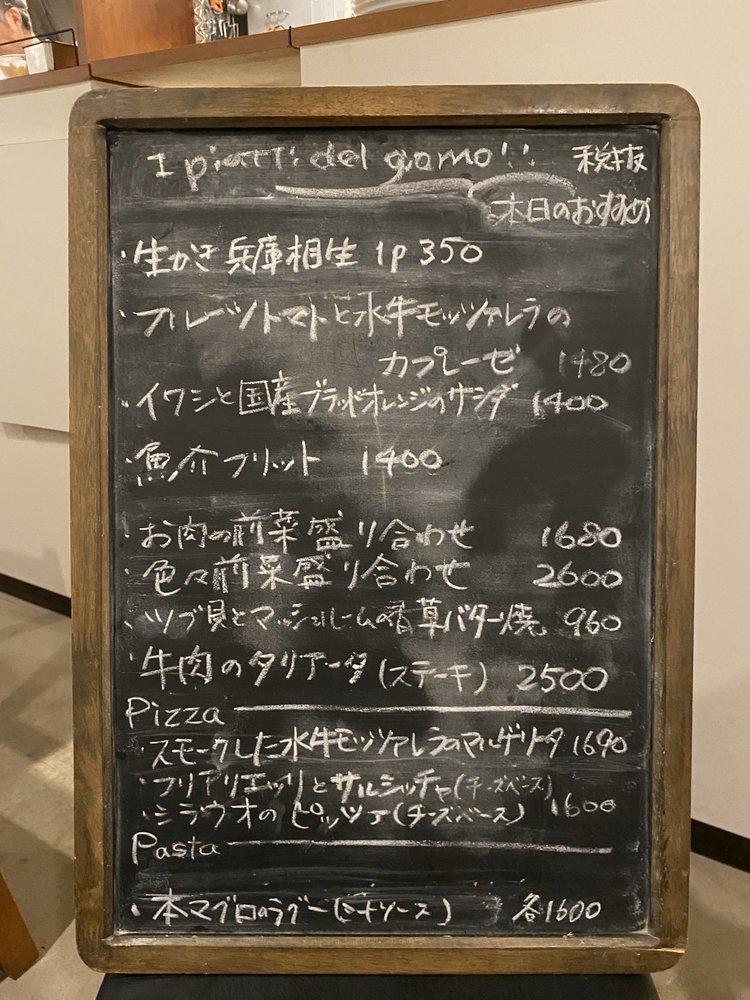 I piatti del giorno!! 税抜
本日のおすすめ
・生がき 兵庫相生 1p 350
・フルーツトマトと水牛モッツァレラの
カプレーゼ 1480
・イワシと国産ブラッドオレンジのサラダ 1400
・魚介フリット 1400
・お肉の前菜盛り合わせ 1680
・色々前菜盛り合わせ 2600
・ツブ貝とマッシュルームの香草バター焼 960
・牛肉のタリアータ(ステーキ) 2500
Pizza
・スモークした水牛モッツァレラのマルゲリータ 1690
・フリアリエッリとサルシッチャ(チーズベース)
・シラウオのピッツァ(チーズベース) 1600
Pasta
・本マグロのラグー(トマトソース) 各1600